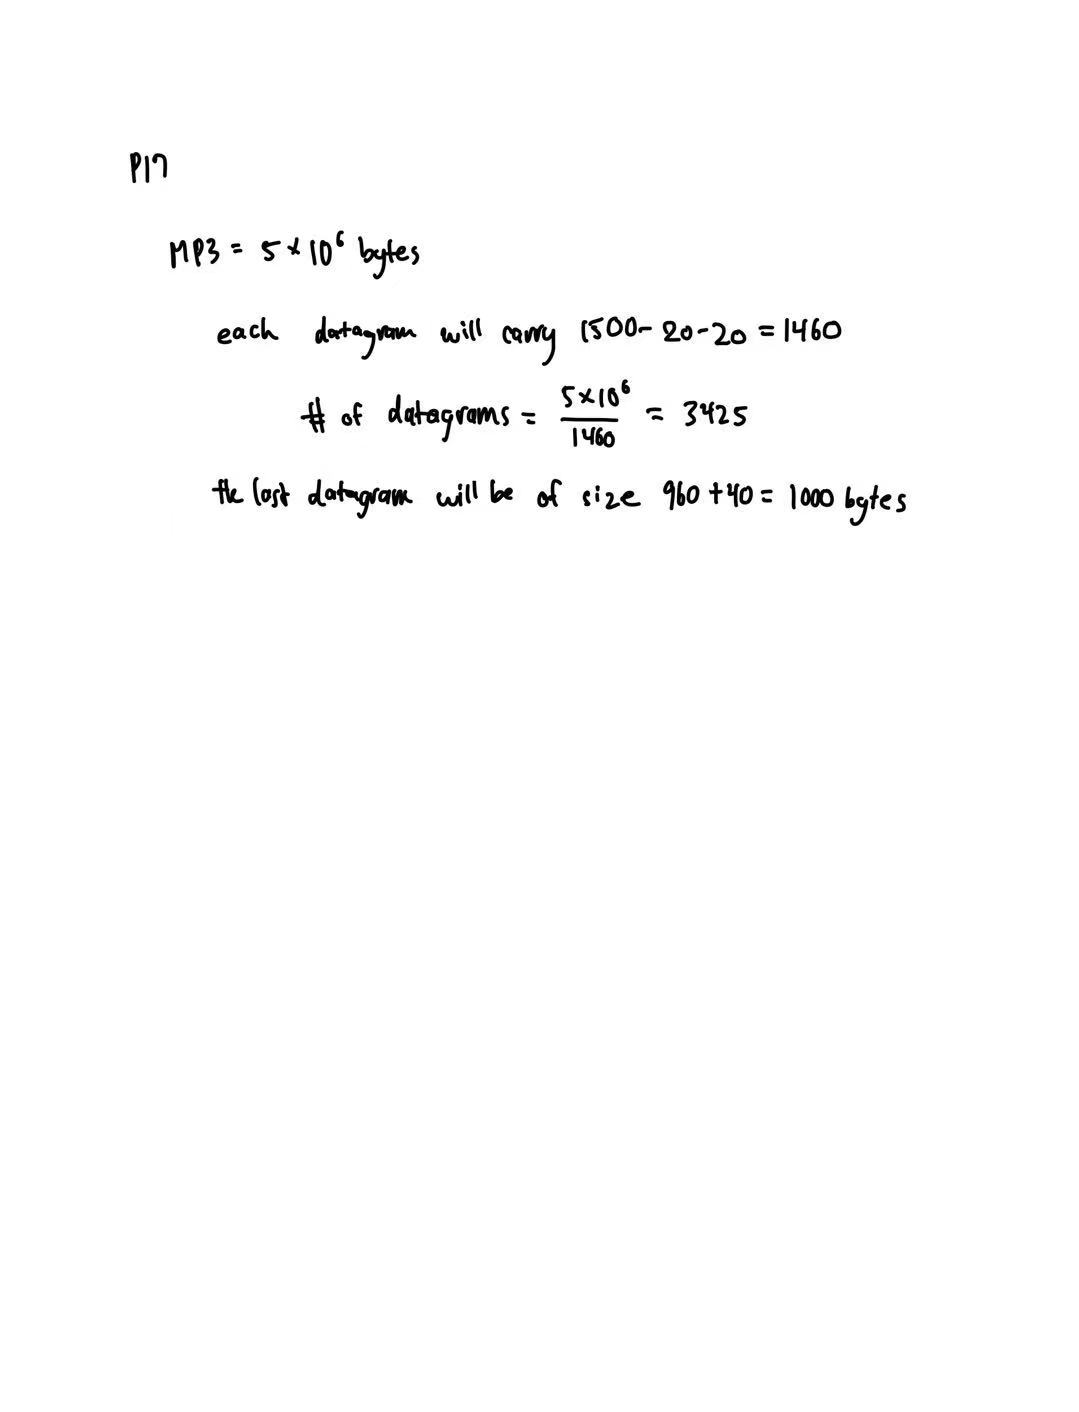 P17
MP3 = 5 × 10⁶ bytes
each datagram will carry 1500 - 20 - 20 = 1460
# of datagrams = 5×10⁶ / 1460 = 3425
the last datagram will be of size 960 + 40 = 1000 bytes